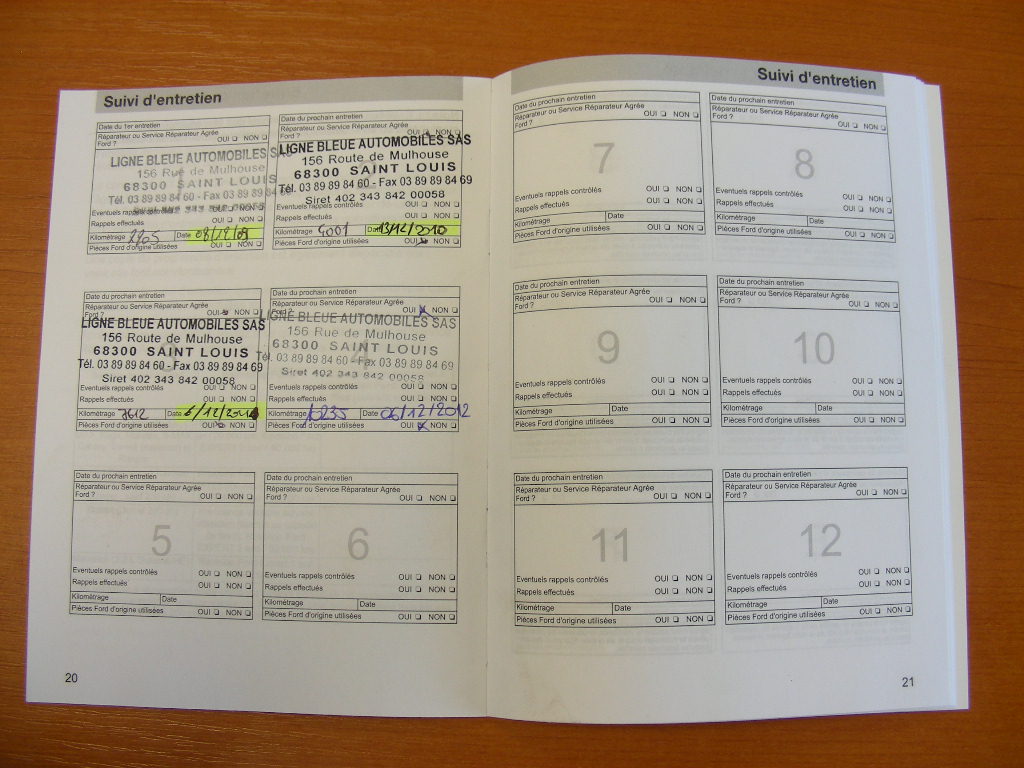 Suivi d'entretien
Date du 1er entretien
Réparateur ou Service Réparateur Agrée
Ford ? OUI ❑ NON ❑
LIGNE BLEUE AUTOMOBILES SAS
156 Rue de Mulhouse
68300 SAINT LOUIS
Tél. 03 89 89 84 60 - Fax 03 89 89 84
Eventuels rappels contrôlés OUI ❑ NON ❑
Rappels effectués OUI ❑ NON ❑
Kilométrage 2905 Date 08/12/09
Pièces Ford d'origine utilisées OUI ❑ NON ❑
Date du prochain entretien
Réparateur ou Service Réparateur Agrée
Ford ? OUI ❑ NON ❑
LIGNE BLEUE AUTOMOBILES SAS
156 Route de Mulhouse
68300 SAINT LOUIS
Tél. 03 89 89 84 60 - Fax 03 89 89 84 69
Siret 402 343 842 00058
Eventuels rappels contrôlés OUI ❑ NON ❑
Rappels effectués OUI ❑ NON ❑
Kilométrage 4001 Date 13/12/2010
Pièces Ford d'origine utilisées OUI NON ❑
Date du prochain entretien
Réparateur ou Service Réparateur Agrée
Ford ? OUI NON ❑
LIGNE BLEUE AUTOMOBILES SAS
156 Route de Mulhouse
68300 SAINT LOUIS
Tél. 03 89 89 84 60 - Fax 03 89 89 84 69
Siret 402 343 842 00058
Eventuels rappels contrôlés OUI ❑ NON ❑
Rappels effectués OUI ❑ NON ❑
Kilométrage 7612 Date 6/12/2011
Pièces Ford d'origine utilisées OUI NON ❑
Date du prochain entretien
Réparateur ou Service Réparateur Agrée
Ford ? OUI NON ❑
LIGNE BLEUE AUTOMOBILES SAS
156 Rue de Mulhouse
68300 SAINT LOUIS
Tél. 03 89 89 84 60 - Fax 03 89 89 84 69
Siret 402 343 842 00058
Eventuels rappels contrôlés OUI ❑ NON ❑
Rappels effectués OUI ❑ NON ❑
Kilométrage 10235 Date 06/12/2012
Pièces Ford d'origine utilisées OUI NON ❑
Date du prochain entretien
Réparateur ou Service Réparateur Agrée
Ford ? OUI ❑ NON ❑
5
Eventuels rappels contrôlés OUI ❑ NON ❑
Rappels effectués OUI ❑ NON ❑
Kilométrage Date
Pièces Ford d'origine utilisées OUI ❑ NON ❑
Date du prochain entretien
Réparateur ou Service Réparateur Agrée
Ford ? OUI ❑ NON ❑
6
Eventuels rappels contrôlés OUI ❑ NON ❑
Rappels effectués OUI ❑ NON ❑
Kilométrage Date
Pièces Ford d'origine utilisées OUI ❑ NON ❑
20
Suivi d'entretien
Date du prochain entretien
Réparateur ou Service Réparateur Agrée
Ford ? OUI ❑ NON ❑
7
Eventuels rappels contrôlés OUI ❑ NON ❑
Rappels effectués OUI ❑ NON ❑
Kilométrage Date
Pièces Ford d'origine utilisées OUI ❑ NON ❑
Date du prochain entretien
Réparateur ou Service Réparateur Agrée
Ford ? OUI ❑ NON ❑
8
Eventuels rappels contrôlés OUI ❑ NON ❑
Rappels effectués OUI ❑ NON ❑
Kilométrage Date
Pièces Ford d'origine utilisées OUI ❑ NON ❑
Date du prochain entretien
Réparateur ou Service Réparateur Agrée
Ford ? OUI ❑ NON ❑
9
Eventuels rappels contrôlés OUI ❑ NON ❑
Rappels effectués OUI ❑ NON ❑
Kilométrage Date
Pièces Ford d'origine utilisées OUI ❑ NON ❑
Date du prochain entretien
Réparateur ou Service Réparateur Agrée
Ford ? OUI ❑ NON ❑
10
Eventuels rappels contrôlés OUI ❑ NON ❑
Rappels effectués OUI ❑ NON ❑
Kilométrage Date
Pièces Ford d'origine utilisées OUI ❑ NON ❑
Date du prochain entretien
Réparateur ou Service Réparateur Agrée
Ford ? OUI ❑ NON ❑
11
Eventuels rappels contrôlés OUI ❑ NON ❑
Rappels effectués OUI ❑ NON ❑
Kilométrage Date
Pièces Ford d'origine utilisées OUI ❑ NON ❑
Date du prochain entretien
Réparateur ou Service Réparateur Agrée
Ford ? OUI ❑ NON ❑
12
Eventuels rappels contrôlés OUI ❑ NON ❑
Rappels effectués OUI ❑ NON ❑
Kilométrage Date
Pièces Ford d'origine utilisées OUI ❑ NON ❑
21